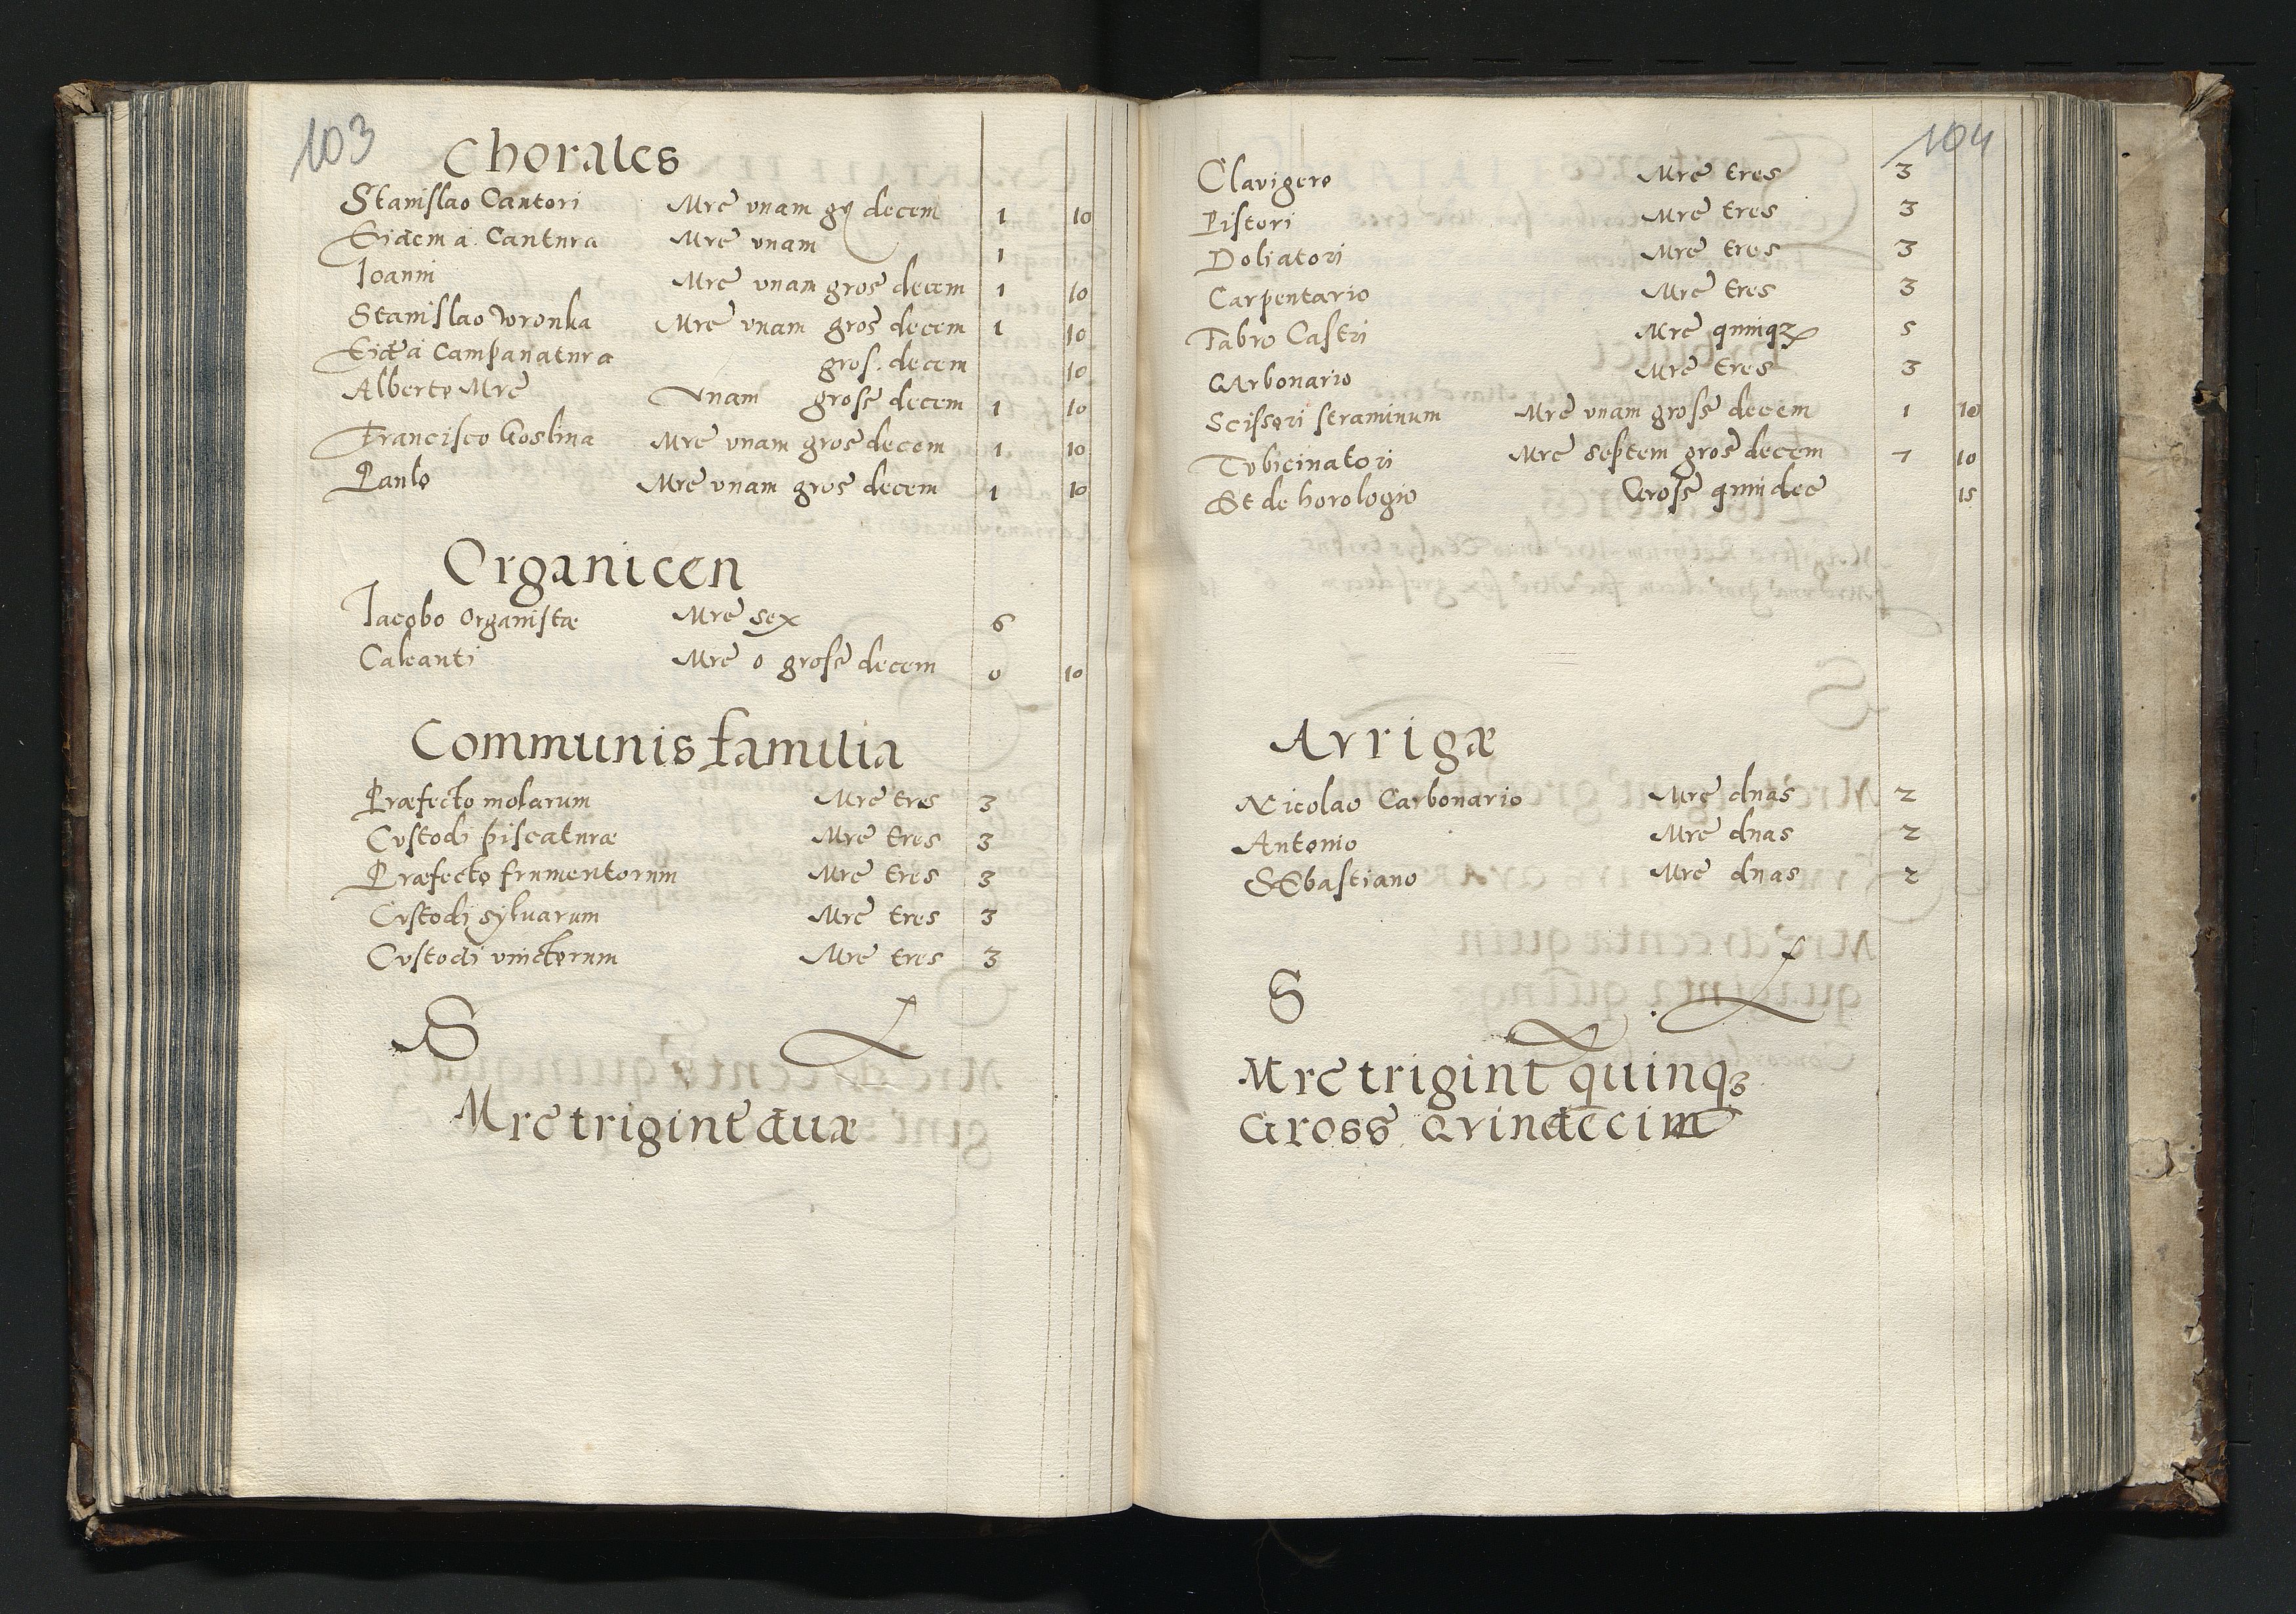 103
Chorales
Stanislao Cantori Mre vnam grz decem 1 10
Eidem a Cantura Mre vnam 1
Ioanni Mre vnam gros decem 1 10
Stanislao Wronka Mre vnam gros decem 1 10
Eidē a Campanatura gros. decem 10
Alberto Mre Vnam gross decem 1 10
Francisco Goslina Mre vnam gros decem 1 10
Paulo Mre vnam gros decem 1 10
Organicen
Iacobo Organistæ Mre sex 6
Calcanti Mre 0 gross decem 0 10
Communis familia
Præfecto molarum Mre tres 3
Cvstodi piscaturæ Mre tres 3
Præfecto frumentorum Mre tres 3
Cvstodi sylvarum Mre tres 3
Cvstodi vinctorum Mre tres 3
S
Mre trigint duæ
104
Clavigero Mre tres 3
Pistori Mre tres 3
Doliatori Mre tres 3
Carpentario Mre tres 3
Fabro Castri Mre quinqz 5
Carbonario Mre tres 3
Scissori straminum Mre vnam gross decem 1 10
Tvbicinatori Mre septem gros decem 7 10
Et de horologio Gross quindec 15
Avrigæ
Nicolao Carbonario Mre duas 2
Antonio Mre duas 2
SEbastiano Mre duas 2
S
Mre trigint quinqz
Gross Qvindecim